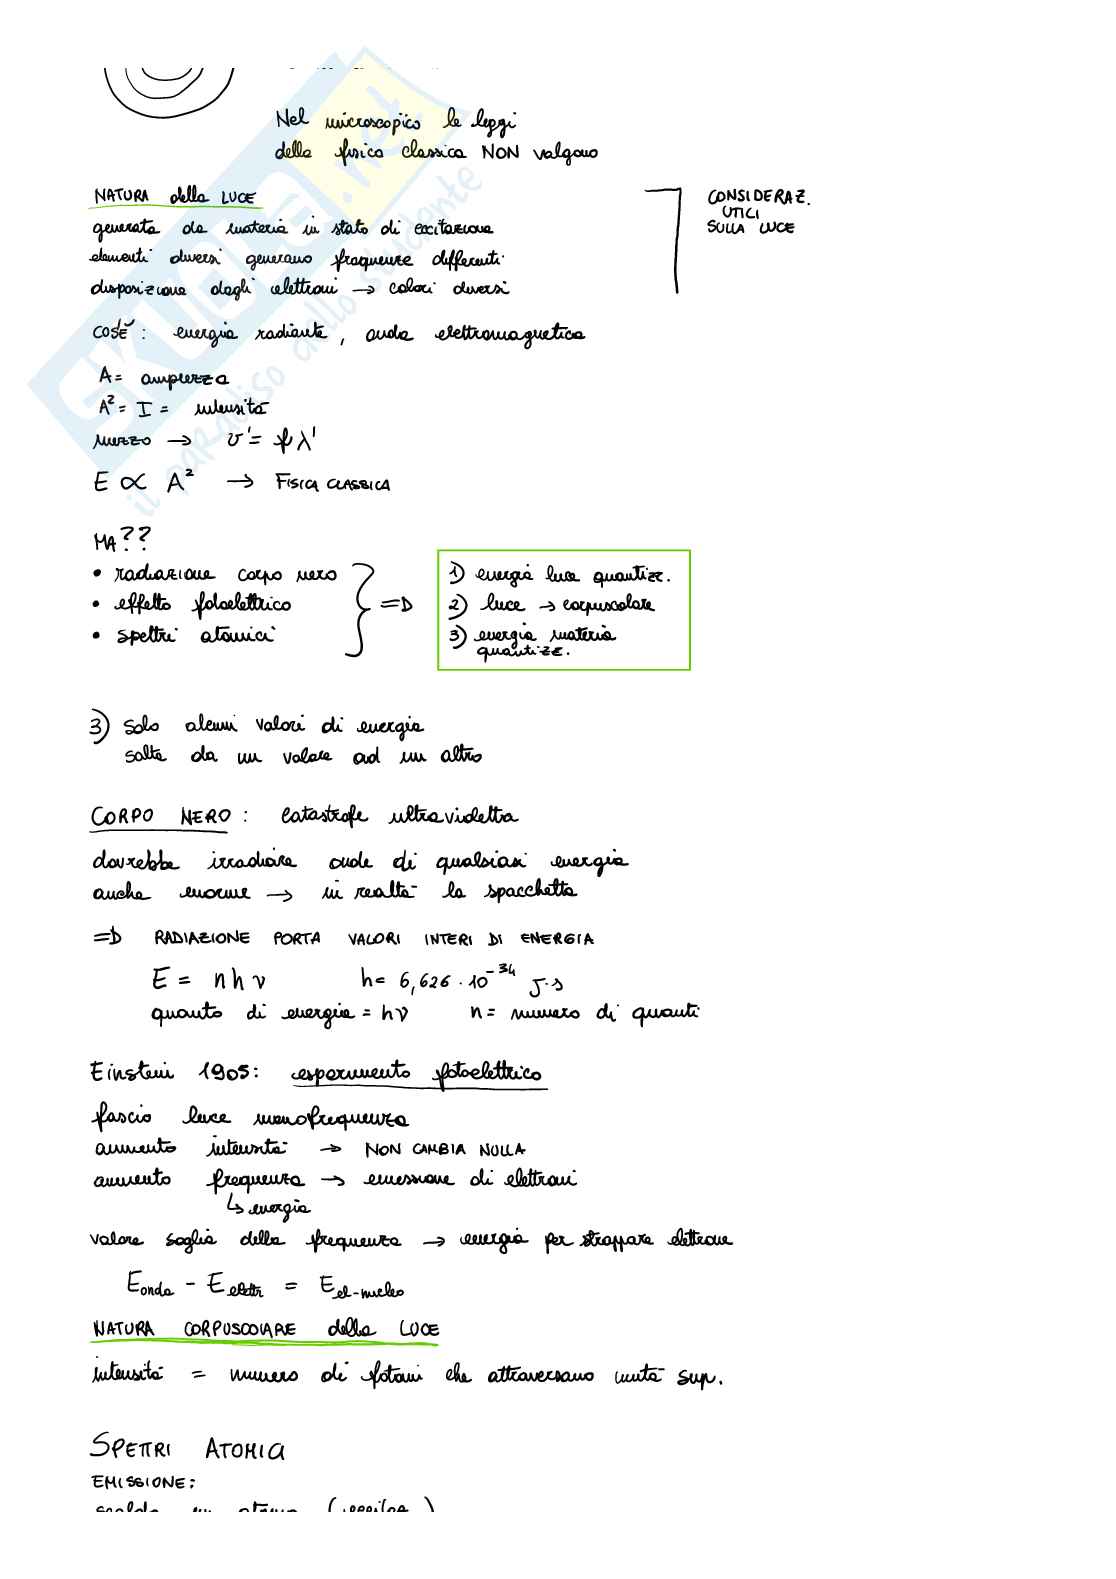 Nel microscopico le leggi
della fisica classica NON valgono
NATURA della LUCE
generata da materia in stato di eccitazione
elementi diversi generano frequenze differenti
disposizione degli elettroni → colori diversi
CONSIDERAZ.
UTILI
SULLA LUCE
COS'È : energia radiante, onda elettromagnetica
A = ampiezza
A² = I = intensità
mezzo → v' = f λ'
E ∝ A² → FISICA CLASSICA
MA??
• radiazione corpo nero
• effetto fotoelettrico
• spettri atomici
=D
1) energia luce quantizz.
2) luce → corpuscolare
3) energia materia
quantizz.
3) solo alcuni valori di energia
salta da un valore ad un altro
CORPO NERO : catastrofe ultravioletta
dovrebbe irradiare onde di qualsiasi energia
anche enorme → in realtà la spacchetta
=D RADIAZIONE PORTA VALORI INTERI DI ENERGIA
E = n h ν h = 6,626 · 10⁻³⁴ J·s
quanto di energia = hν n = numero di quanti
Einstein 1905: esperimento fotoelettrico
fascio luce monofrequenza
aumento intensità → NON CAMBIA NULLA
aumento frequenza → emissione di elettroni
↳ energia
valore soglia della frequenza → energia per strappare elettrone
E onda - E elettr = E el-nucleo
NATURA CORPUSCOLARE della LUCE
intensità = numero di fotoni che attraversano unità sup.
SPETTRI ATOMICI
EMISSIONE:
SKUOLA.net
il paradiso dello studente